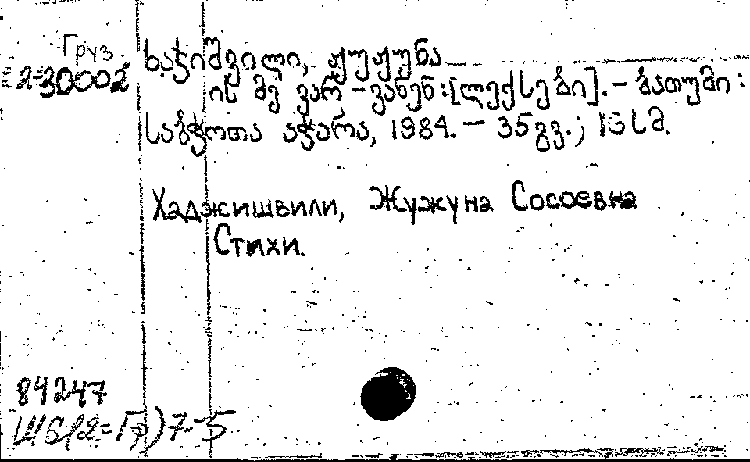 Груз
2-30002
ხაჭიშვილი, ჟუჟუნა
ის მე ვარ - ვანენ : [ლექსები]. - ბათუმი :
საბჭოთა აჭარა, 1984. - 35გვ.; 16 სმ.
Хаджишвили, Жужуна Сосоевна
Стихи.
84247
Ш6(2=Гр)7-5